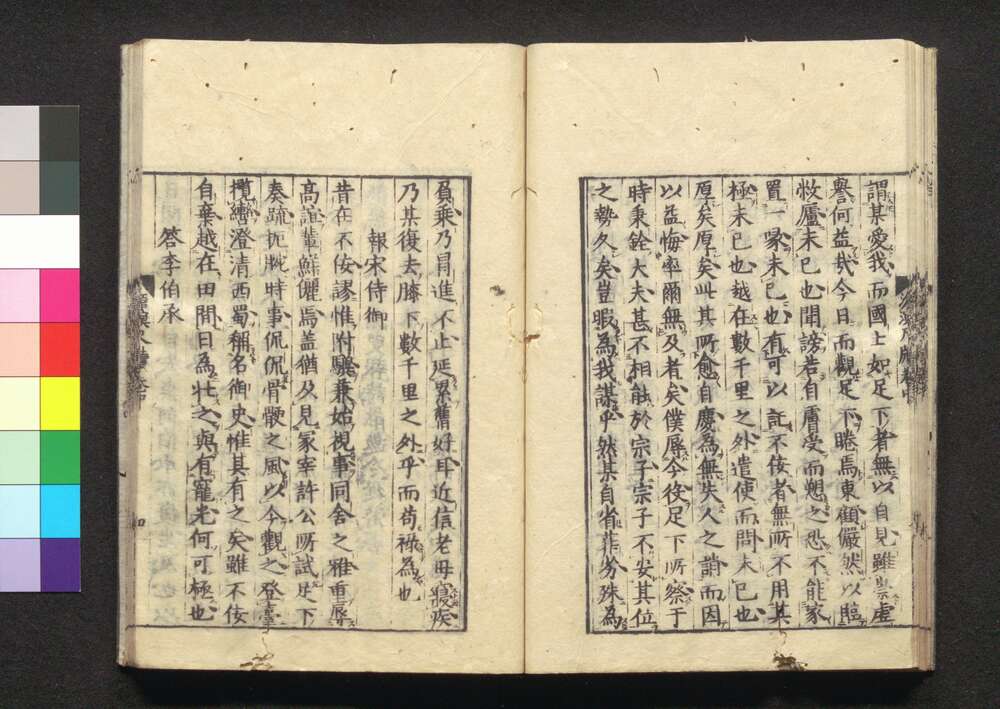 謂某愛我而國士如足下者無以自見雖崇虛
譽何益哉今日而觀足下睠焉東顧儼然以臨
敝廬未已也聞謗若自膚受而愬之恐不能家
置一喙未已也有可以託不佞者無所不用其
極未已也越在數千里之外遣使而問未已也
原矣原矣此其所愈自慶為無失人之誚而因
以益悔率爾無及者矣僕辱今役足下所察于
時秉銓大夫甚不相能於宗子宗子不安其位
之勢久矣豈暇為我謀乎然某自省菲劣殊為
負乘乃冒進不止延累舊好耳近信老母寢疾
乃某復去膝下數千里之外乎而苟祿為也
報宋侍御
昔在不佞謬惟附驥兼始視事同舍之雅重辱
高誼輩鮮儷焉蓋猶及見冢宰許公所試足下
奏疏扼腕時事侃侃骨骾之風以今觀之登臺
攬轡澄清西蜀稱名御史惟其有之矣雖不佞
自棄越在田間日為壯之與有寵光何可極也
答李伯承